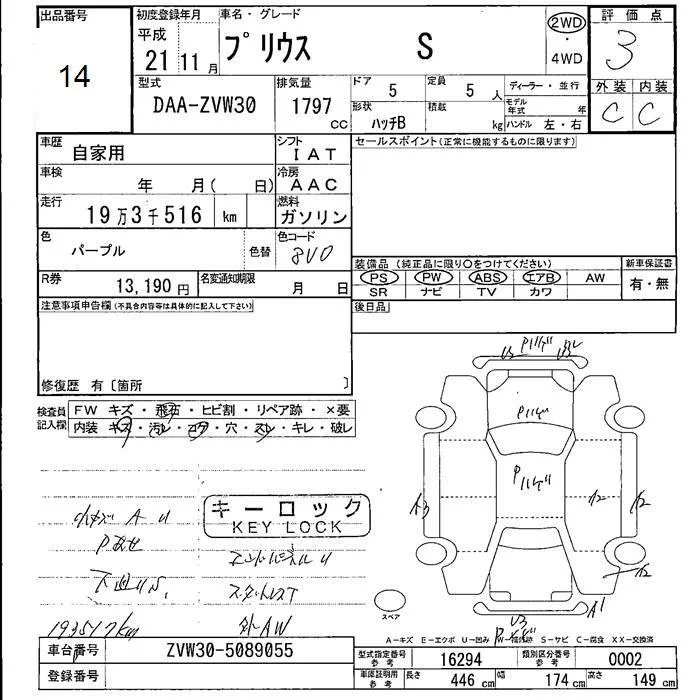 出品番号 初度登録年月 車名・グレード 2WD 評価点
平成
14 21年 11月 プリウス S ・ 3
4WD
型式 排気量 ドア 5 定員 5 人 ディーラー・並行 外装 内装
DAA-ZVW30 1797 cc 形状 ハッチB 積載 kg モデル年式 年 C C
ハンドル 左・右
車歴 自家用 シフト IAT セールスポイント(正常に機能するものに限ります)
車検 年 月( 日) 冷房 AAC
走行 19万3千516 km 燃料 ガソリン
色 パープル 色替 色コード 8V0
装備品(純正品に限り〇をつけてください) 新車保証書
R券 13,190円 名変通知期限 月 日 PS PW ABS エアB AW 有・無
SR ナビ TV カワ
注意事項申告欄(不具合内容等は具体的に記入して下さい) 後日品
修復歴 有〔箇所 〕
検査員 FW キズ・飛石・ヒビ割・リペア跡・×要
記入欄 内装 キズ・汚レ・コゲ・穴・スレ・キレ・破レ
キーロック
KEY LOCK
小キズ A U
下廻りS
スタットレスT
193517km 外AW
U3
A3
A2
A2
A2
A1
U3
スペア
A-キズ E-エクボ U-凹み W-補修跡 S-サビ C-腐食 XX-交換済
車台番号 ZVW30-5089055 型式指定番号 参考 16294 類別区分番号 参考 0002
登録番号 車庫証明用 参考 長さ 446 cm 幅 174 cm 高さ 149 cm